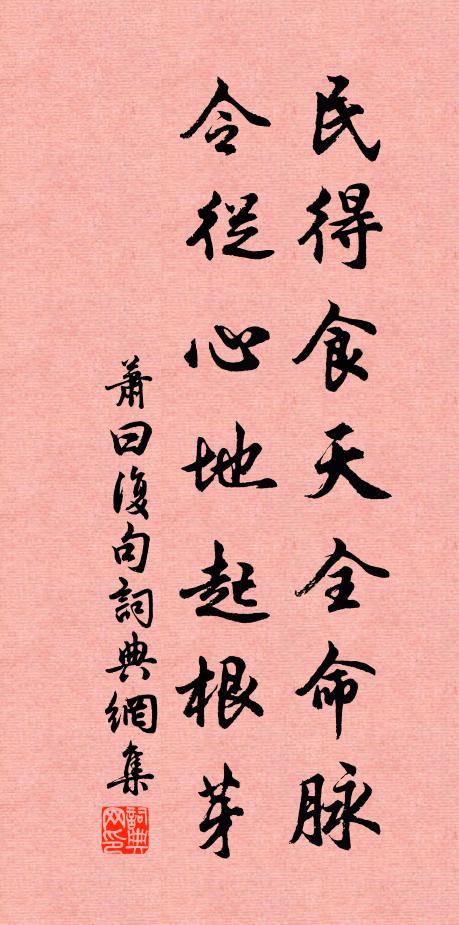 民得食天全命脉
令從心地起根芽
萧曰復句詞典網集
詞典
网印